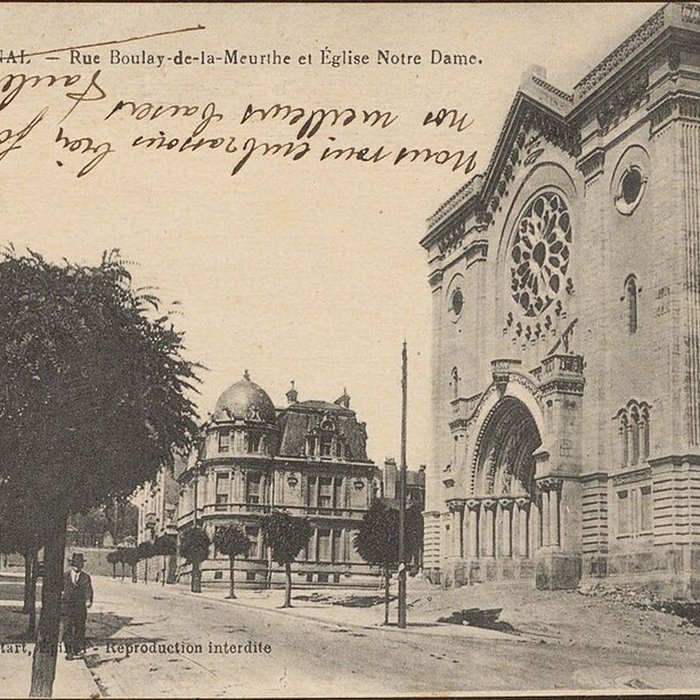 NAL. — Rue Boulay-de-la-Meurthe et Église Notre Dame.
Nous vous embrassons bien
nos meilleurs baisers
Paule
tart, Épinal - Reproduction interdite